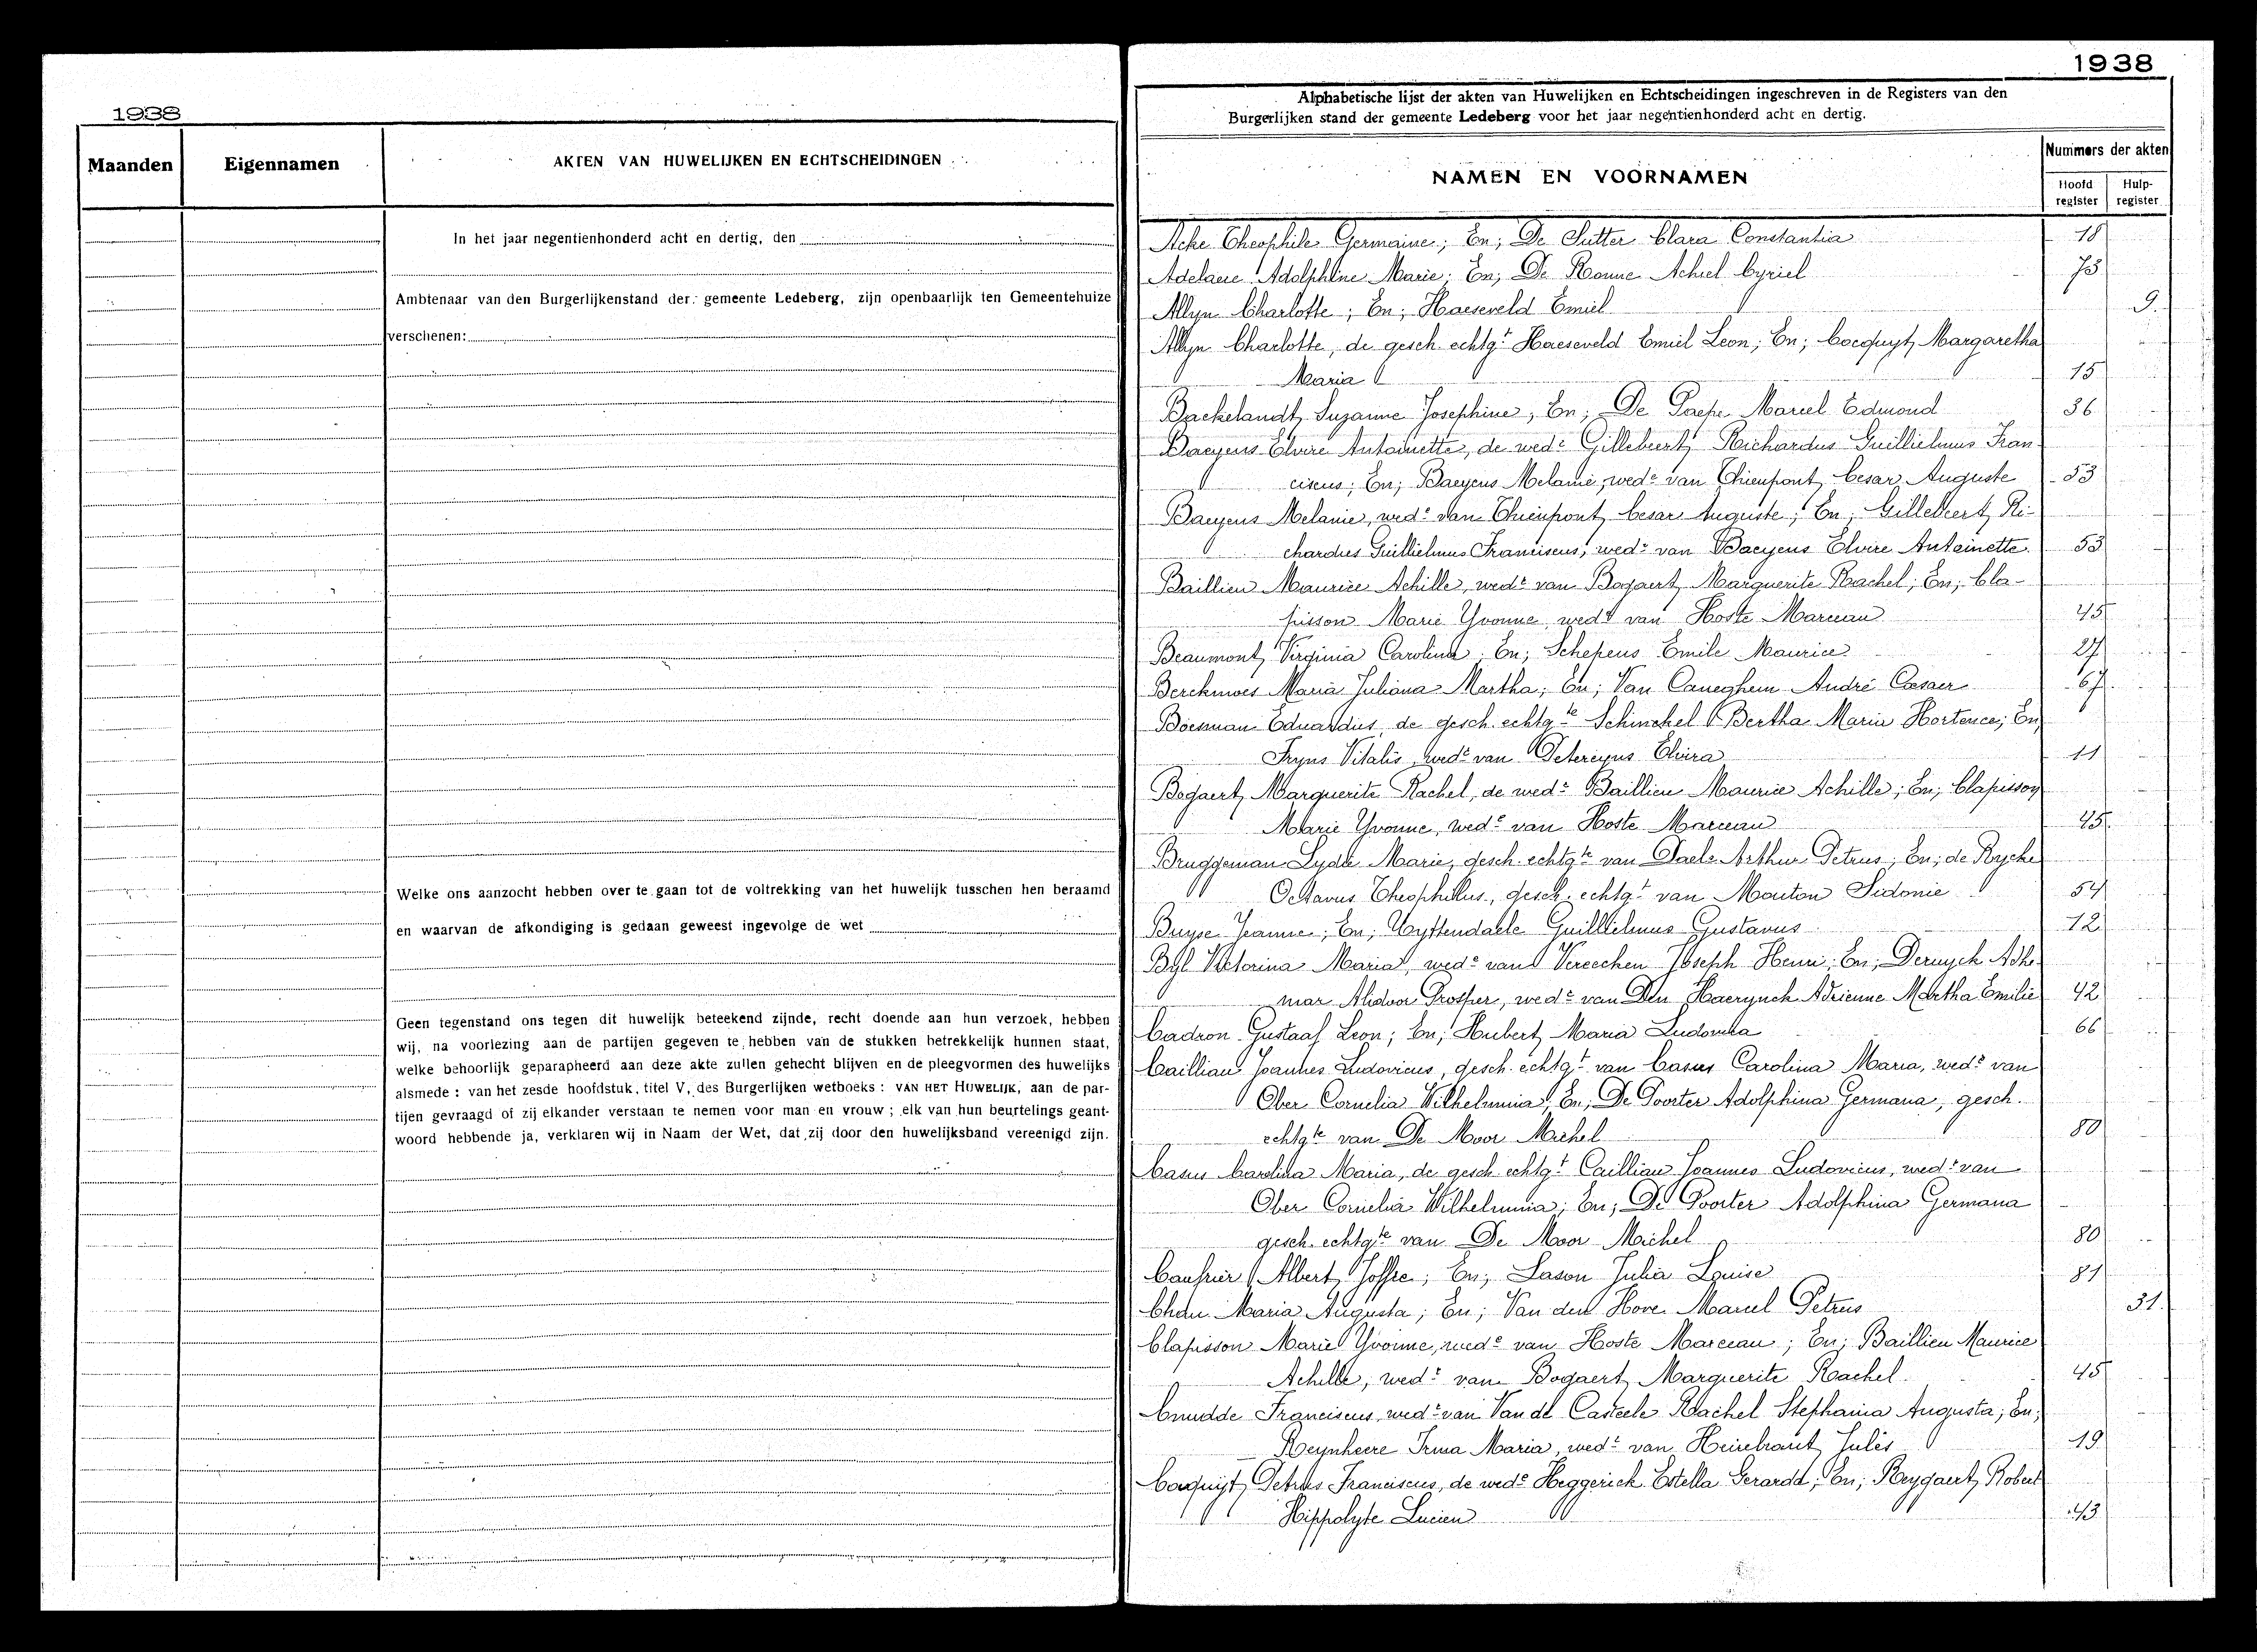 1938
Maanden
Eigennamen
AKTEN VAN HUWELIJKEN EN ECHTSCHEIDINGEN
In het jaar negentienhonderd acht en dertig, den
Ambtenaar van den Burgerlijkenstand der gemeente Ledeberg, zijn openbaarlijk ten Gemeentehuize
verschenen:
Welke ons aanzocht hebben over te gaan tot de voltrekking van het huwelijk tusschen hen beraamd
en waarvan de afkondiging is gedaan geweest ingevolge de wet
Geen tegenstand ons tegen dit huwelijk beteekend zijnde, recht doende aan hun verzoek, hebben
wij, na voorlezing aan de partijen gegeven te hebben van de stukken betrekkelijk hunnen staat,
welke behoorlijk geparapheerd aan deze akte zullen gehecht blijven en de pleegvormen des huwelijks
alsmede : van het zesde hoofdstuk, titel V, des Burgerlijken wetboeks : VAN HET HUWELIJK, aan de par-
tijen gevraagd of zij elkander verstaan te nemen voor man en vrouw ; elk van hun beurtelings geant-
woord hebbende ja, verklaren wij in Naam der Wet, dat zij door den huwelijksband vereenigd zijn.
1938
Alphabetische lijst der akten van Huwelijken en Echtscheidingen ingeschreven in de Registers van den
Burgerlijken stand der gemeente Ledeberg voor het jaar negentienhonderd acht en dertig.
NAMEN EN VOORNAMEN
Nummers der akten
Hoofd register
Hulp-register
Theophile Germaine; En; De Sutter Clara Constantia 18
Adolphine Marie; En; De Ronne Achiel Cyriel 73
Allyn Charlotte; En; Haeseveld Emiel 9.
Allyn Charlotte, de gesch. echtgt Haeseveld Emiel Leon; En; Cocquyt Margaretha
Maria 15
Backelandt Suzanne Josephine; En; De Paepe Marcel Edmond 36
Baeyens Elvire Antoinette, de wedr Gillebeert Richardus Guillielmus Fran-
ciscus; En; Baeyens Melanie, wede van Thienpont Cesar Auguste 53
Baeyens Melanie, wede van Thienpont Cesar Auguste; En; Gillebeert Ri-
chardus Guillielmus Franciscus, wedr van Baeyens Elvire Antoinette 53
Baillieu Maurice Achille, wedr van Bogaert Marguerite Rachel; En; Cla-
pisson Marie Yvonne, wede van Hoste Marceau 45
Beaumont Virginia Carolina; En; Schepens Emile Maurice 27
Berckmoes Maria Juliana Martha; En; Van Caneghem André Cesar 67
Boesman Eduardus, de gesch. echtgte Schinckel Bertha Maria Hortence; En;
Fryns Vitalis, wedr van Petereyns Elvira 11
Bogaert Marguerite Rachel, de wedr Baillieu Maurice Achille; En; Clapisson
Marie Yvonne, wede van Hoste Marceau 45.
Bruggeman Lydie Marie, gesch. echtgte van Daels Arthur Petrus; En; de Rycke
Octavus Theophilus, gesch. echtgt van Mouton Sidonie 54
Buyse Jeanne; En; Uyttendaele Guillielmus Gustavus 12
Byl Victorina Maria, wede van Vereecken Joseph Henri; En; Deruyck Adhe-
mar Alidoor Prosper, wedr van Den Haerynck Adrienne Martha Emilie 42
Cadron Gustaaf Leon; En; Hubert Maria Ludovika 66
Cailliau Joannes Ludovicus, gesch. echtgt van Casus Carolina Maria, wedr van
Ober Cornelia Wilhelmina; En; De Poorter Adolphina Germana, gesch.
echtgte van De Moor Michel 80
Casus Carolina Maria, de gesch. echtgt Cailliau Joannes Ludovicus, wedr van
Ober Cornelia Wilhelmina; En; De Poorter Adolphina Germana
gesch. echtgte van De Moor Michel 80
Albert Joffre; En; Lason Julia Louise 81
Maria Augusta; En; Van den Hove Marcel Petrus 31.
Clapisson Marie Yvonne, wede van Hoste Marceau; En; Baillieu Maurice
Achille, wedr van Bogaert Marguerite Rachel 45
Cnudde Franciscus, wedr van Van de Casteele Rachel Stephania Augusta; En;
Reynheere Irma Maria, wede van Jules 19
Cocquyt Petrus Franciscus, de wedr Heggerick Estella Gerarda; En; Reygaert Robert
Hippolyte Lucien 43